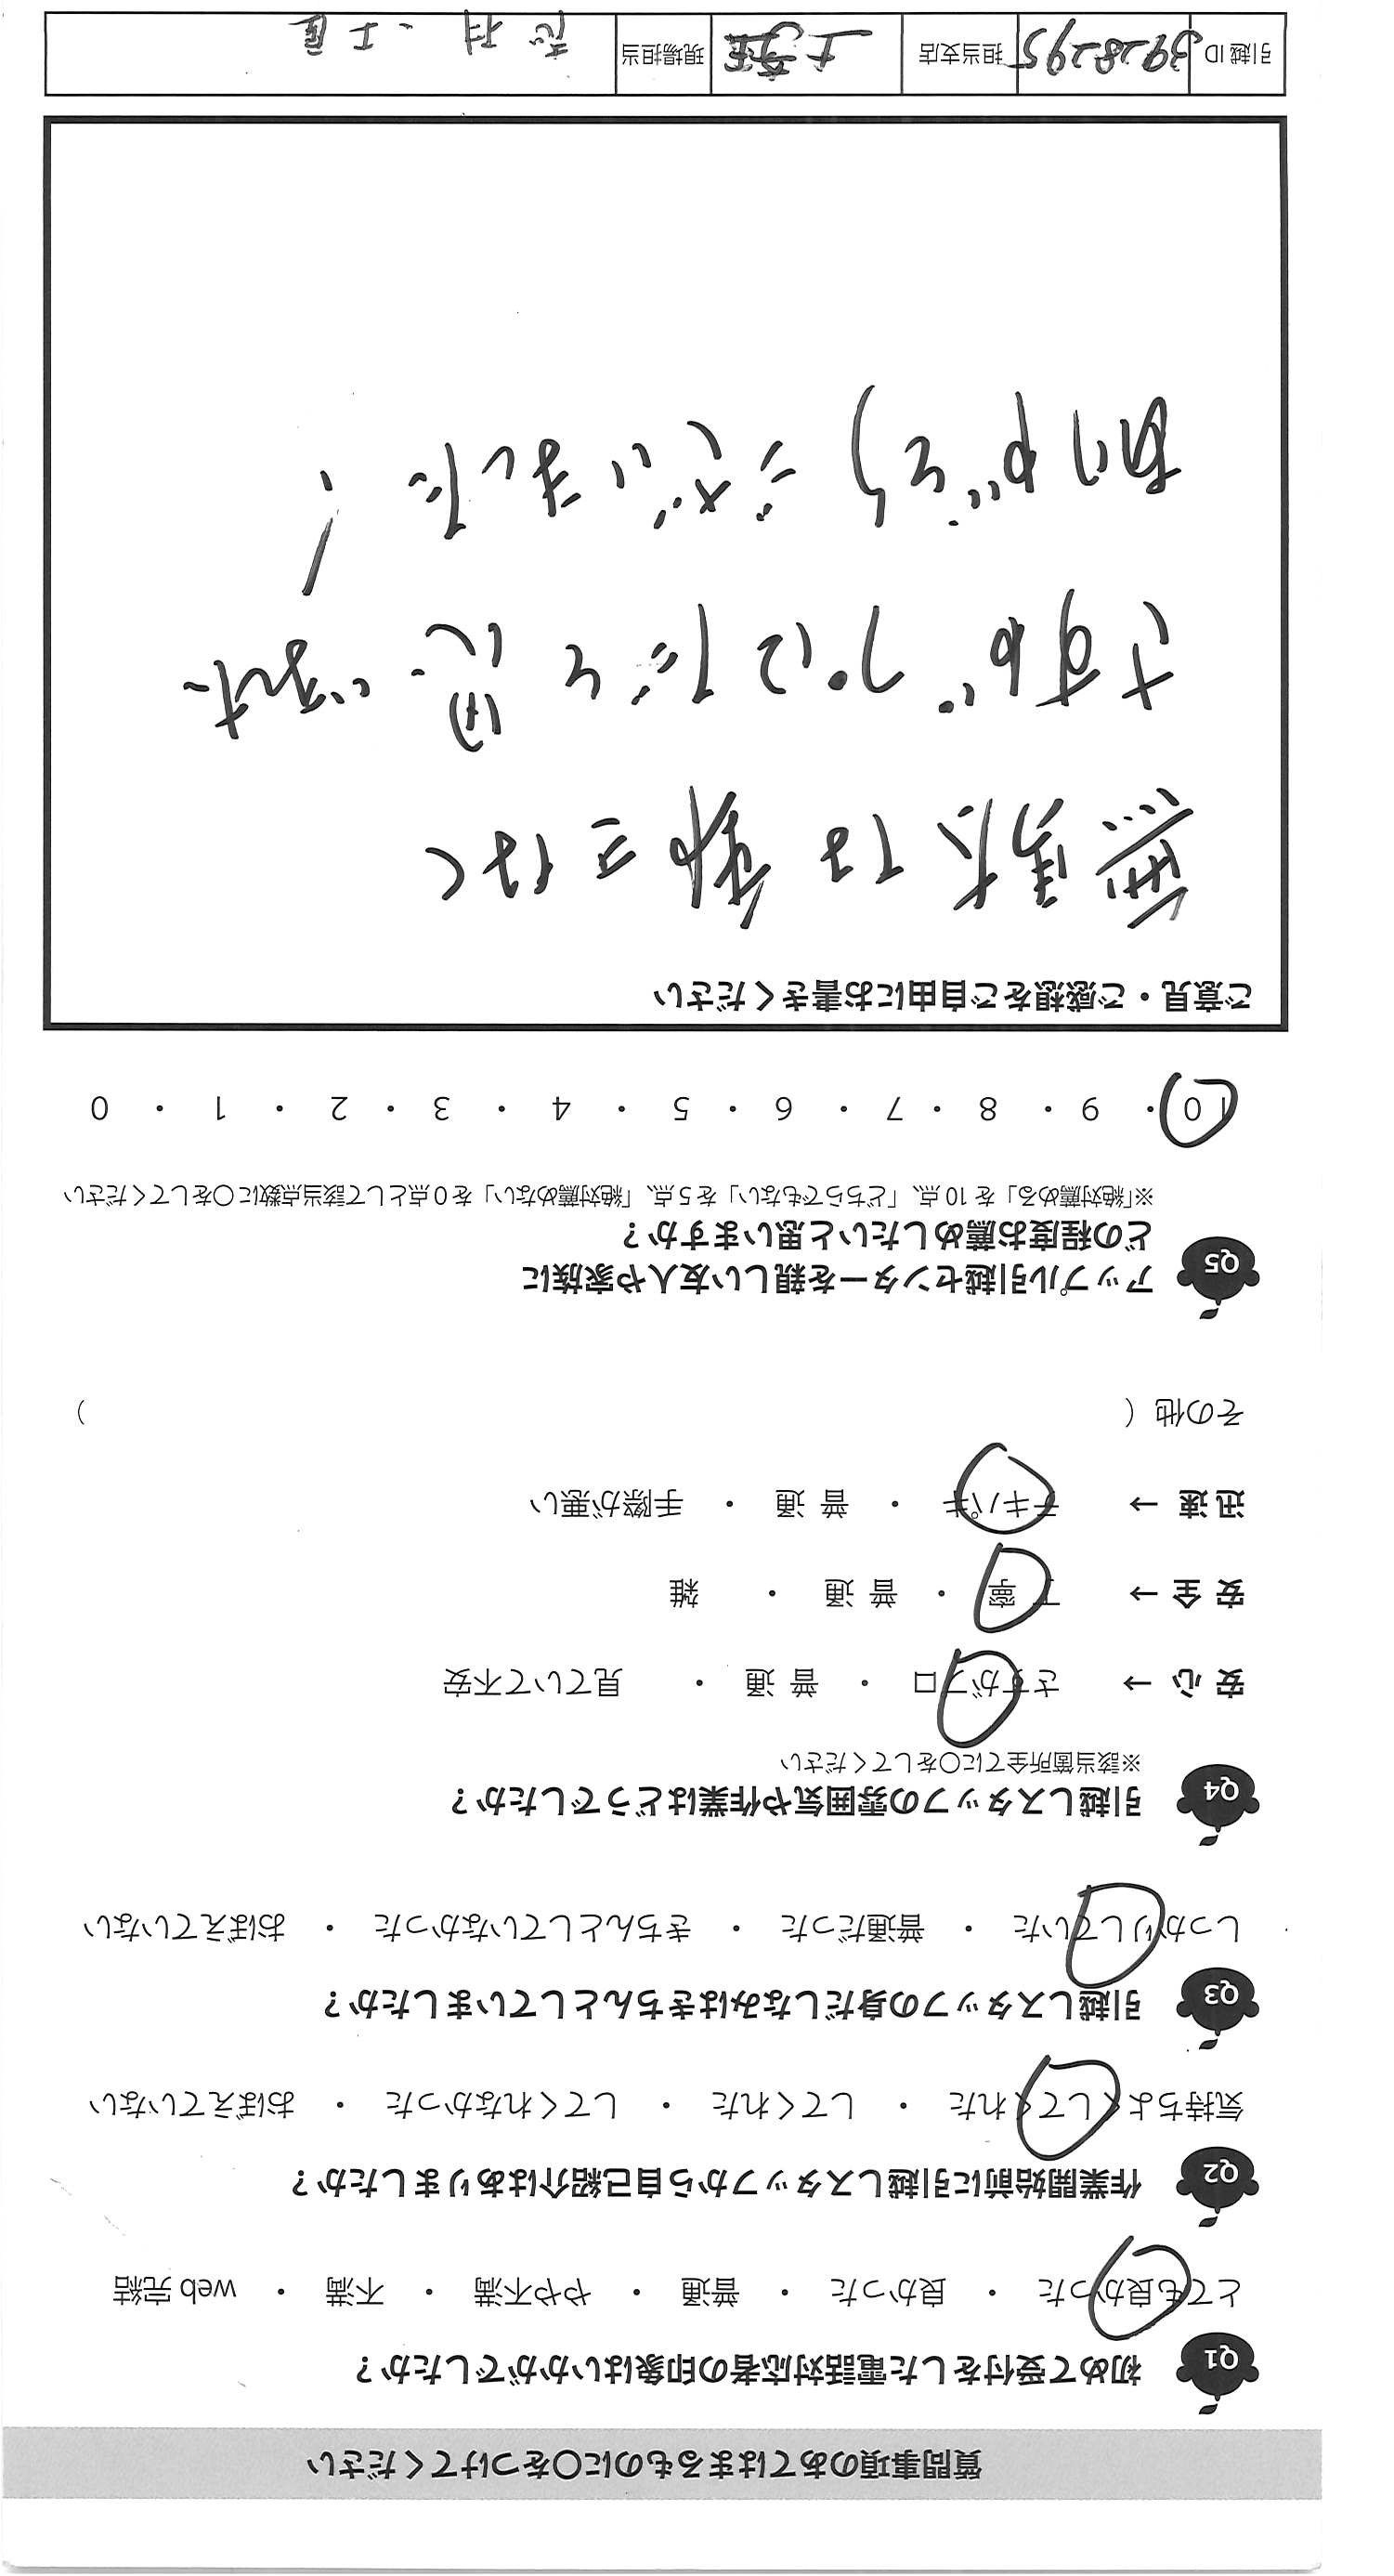 質問事項のあてはまるものに○をつけてください
Q1 初めて受付をした電話対応者の印象はいかがでしたか？
とても良かった ・ 良かった ・ 普通 ・ やや不満 ・ 不満 ・ web 完結
Q2 作業開始前に引越しスタッフから自己紹介はありましたか？
気持ちよくしてくれた ・ してくれた ・ してくれなかった ・ おぼえていない
Q3 引越しスタッフの身だしなみはきちんとしていましたか？
しっかりしていた ・ 普通だった ・ きちんとしていなかった ・ おぼえていない
Q4 引越しスタッフの雰囲気や作業はどうでしたか？
※該当箇所全てに○をしてください
安 心 → さすがプロ ・ 普 通 ・ 見ていて不安
安 全 → 丁 寧 ・ 普 通 ・ 雑
迅 速 → テキパキ ・ 普 通 ・ 手際が悪い
その他（ ）
Q5 アップル引越センターを親しい友人や家族に
どの程度お薦めしたいと思いますか？
※「絶対薦める」を 10 点、「どちらでもない」を 5 点、「絶対薦めない」を 0 点として該当点数に○をしてください
10 ・ 9 ・ 8 ・ 7 ・ 6 ・ 5 ・ 4 ・ 3 ・ 2 ・ 1 ・ 0
ご意見・ご感想をご自由にお書きください
無駄な動きなく
さすが プロだと思いました
ありがとうございました！
引越 ID 3928295 担当支店 現場担当